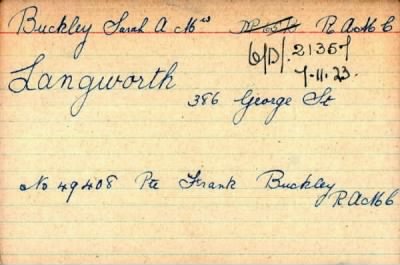 Buckley Sarah A Mrs R A M C
6/D/.21357
7-11.23.
Langworth
386 George St
No 49408 Pte Frank Buckley
R A M C